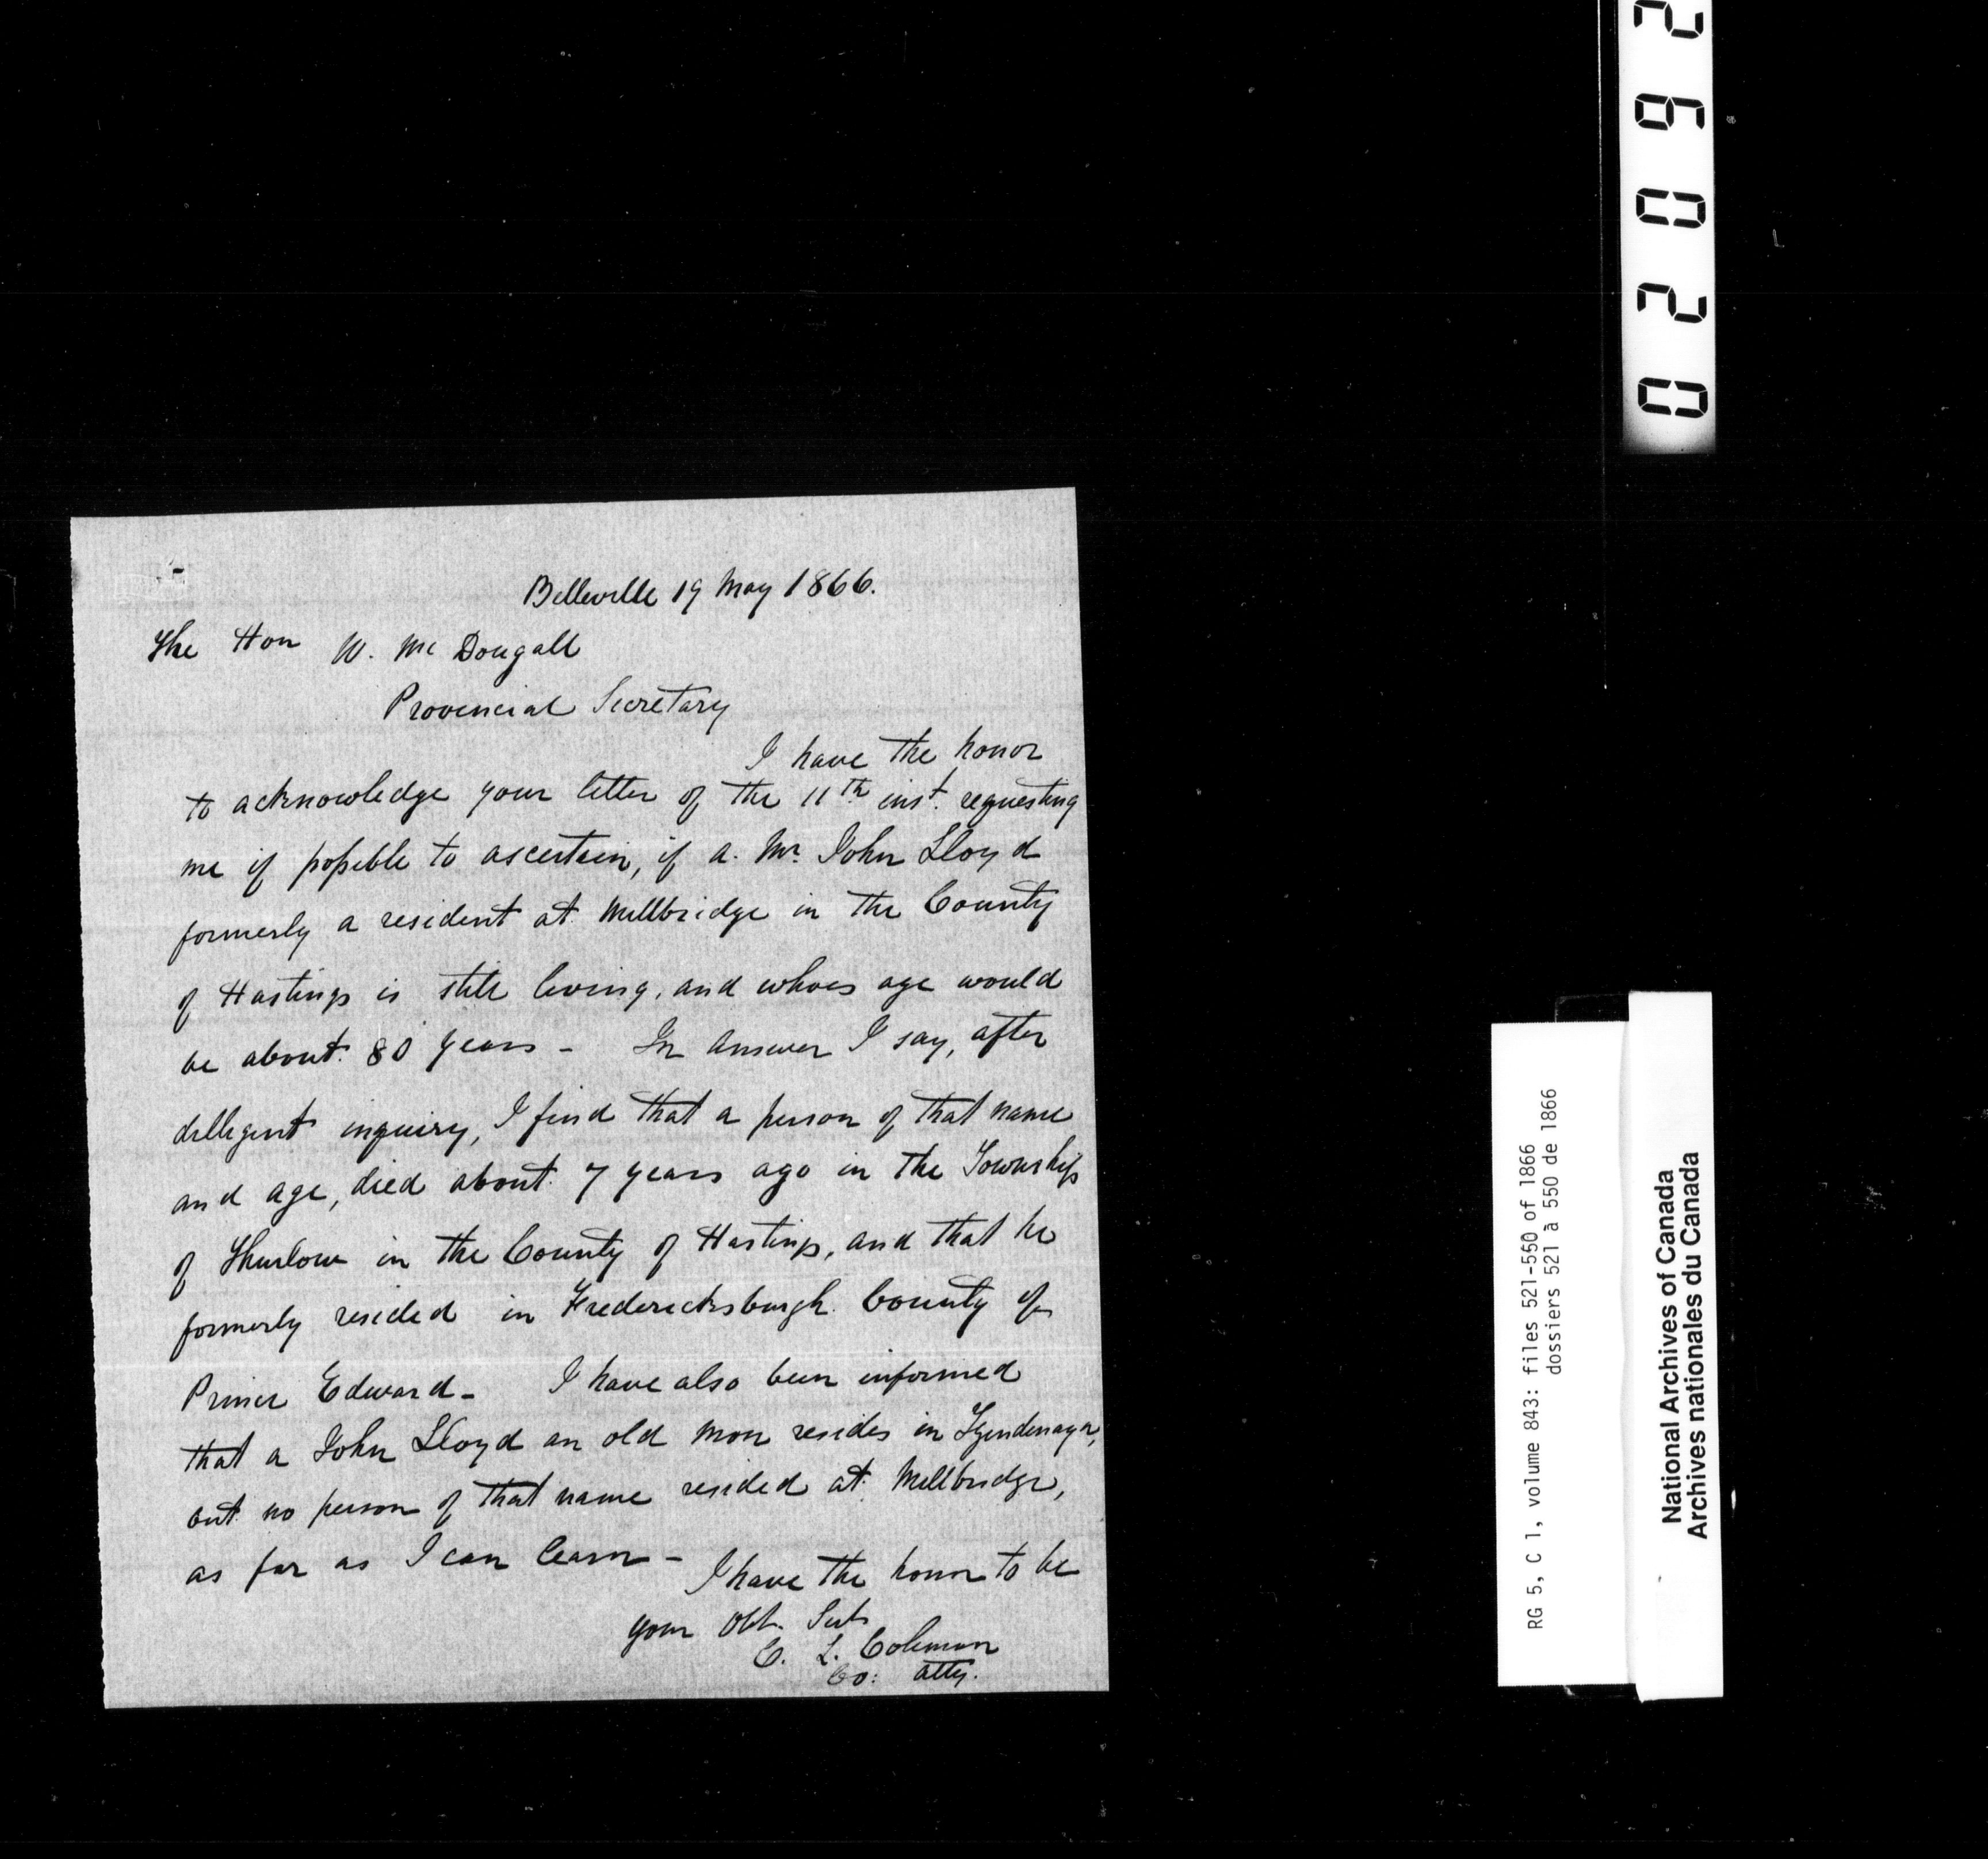 Belleville 19 May 1866.
The Hon W. Mc Dougall
Provincial Secretary
I have the honor
to acknowledge your letter of the 11th inst. requesting
me if possible to ascertain, if a Mr. John Lloyd
formerly a resident at Millbridge in the County
of Hastings is still living, and whoes age would
be about 80 years - In answer I say, after
dilligent inquiry, I find that a person of that name
and age, died about 7 years ago in the Township
of Thurlow in the County of Hastings, and that he
formerly resided in Fredericksburgh County of
Prince Edward - I have also been informed
that a John Lloyd an old man resides in Tyendenaga,
but no person of that name resided at Millbridge,
as far as I can learn -
I have the honor to be
your Obt. Servt
C. L. Coleman
Co: Atty.
02092
RG 5, C 1, volume 843: files 521-550 of 1866
dossiers 521 à 550 de 1866
National Archives of Canada
Archives nationales du Canada